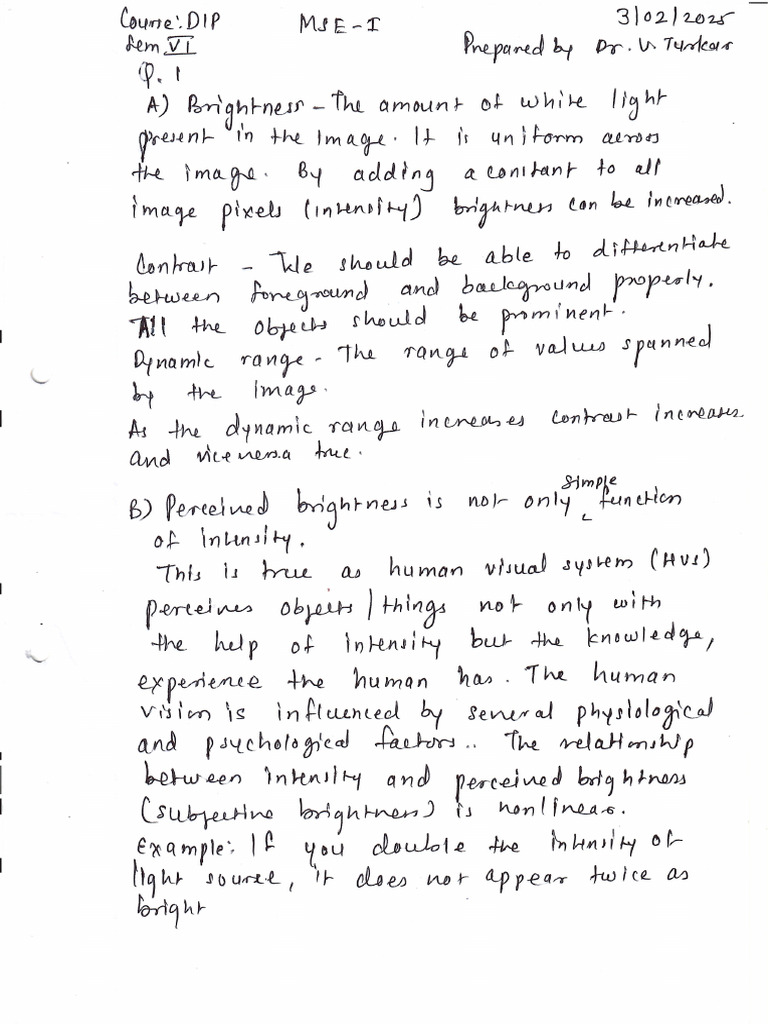 Course: DIP MSE-I 3/02/2025
Sem VI Prepared by Dr. V. Turkar
Q. 1
A) Brightness - The amount of white light
present in the image. It is uniform across
the image. By adding a constant to all
image pixels (intensity) brightness can be increased.
Contrast - We should be able to differentiate
between foreground and background properly.
All the objects should be prominent.
Dynamic range - The range of values spanned
by the image.
As the dynamic range increases contrast increases
and vice versa true.
B) Perceived brightness is not only simple function
of intensity.
This is true as human visual system (HVS)
perceives objects/things not only with
the help of intensity but the knowledge,
experience the human has. The human
vision is influenced by several physiological
and psychological factors.. The relationship
between intensity and perceived brightness
(subjective brightness) is nonlinear.
Example: If you double the intensity of
light source, it does not appear twice as
bright